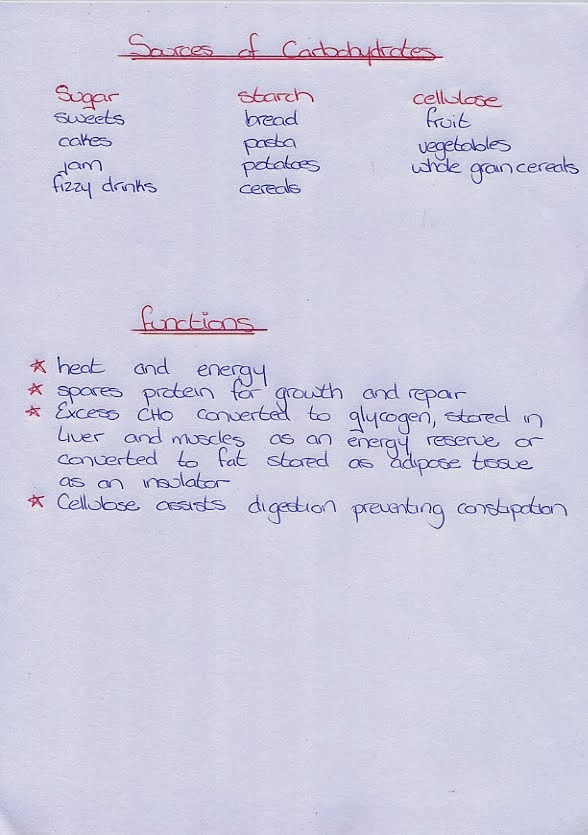 Sources of Carbohydrates
Sugar starch cellulose
sweets bread fruit
cakes pasta vegetables
jam potatoes whole grain cereals
fizzy drinks cereals
functions
* heat and energy
* spares protein for growth and repair
* Excess CHO converted to glycogen, stored in
Liver and muscles as an energy reserve or
converted to fat stored as adipose tissue
as an insulator
* Cellulose assists digestion preventing constipation